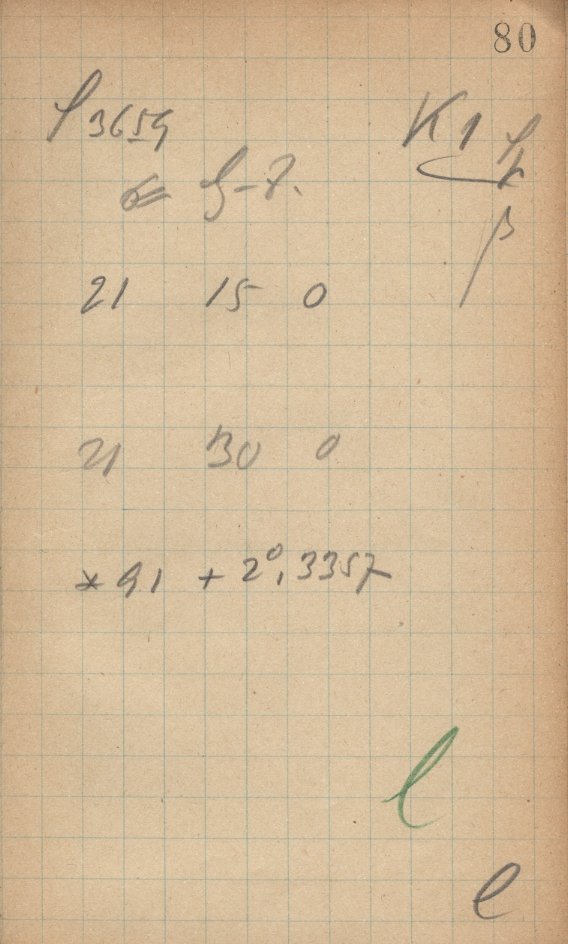 80
P 3659
K 1
β
21 15 0
21 30 0
* 91 + 2°,3357
l
e